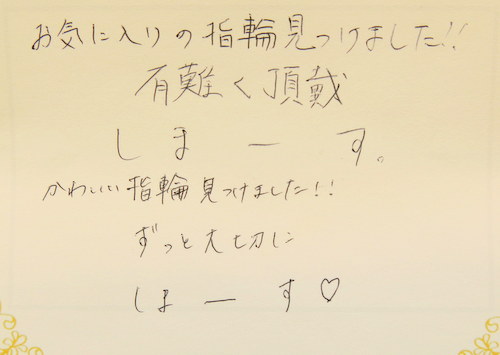 お気に入りの指輪見つけました!!
有難く頂戴
しまーす。
かわいい指輪見つけました!!
ずっと大切に
しまーす♡